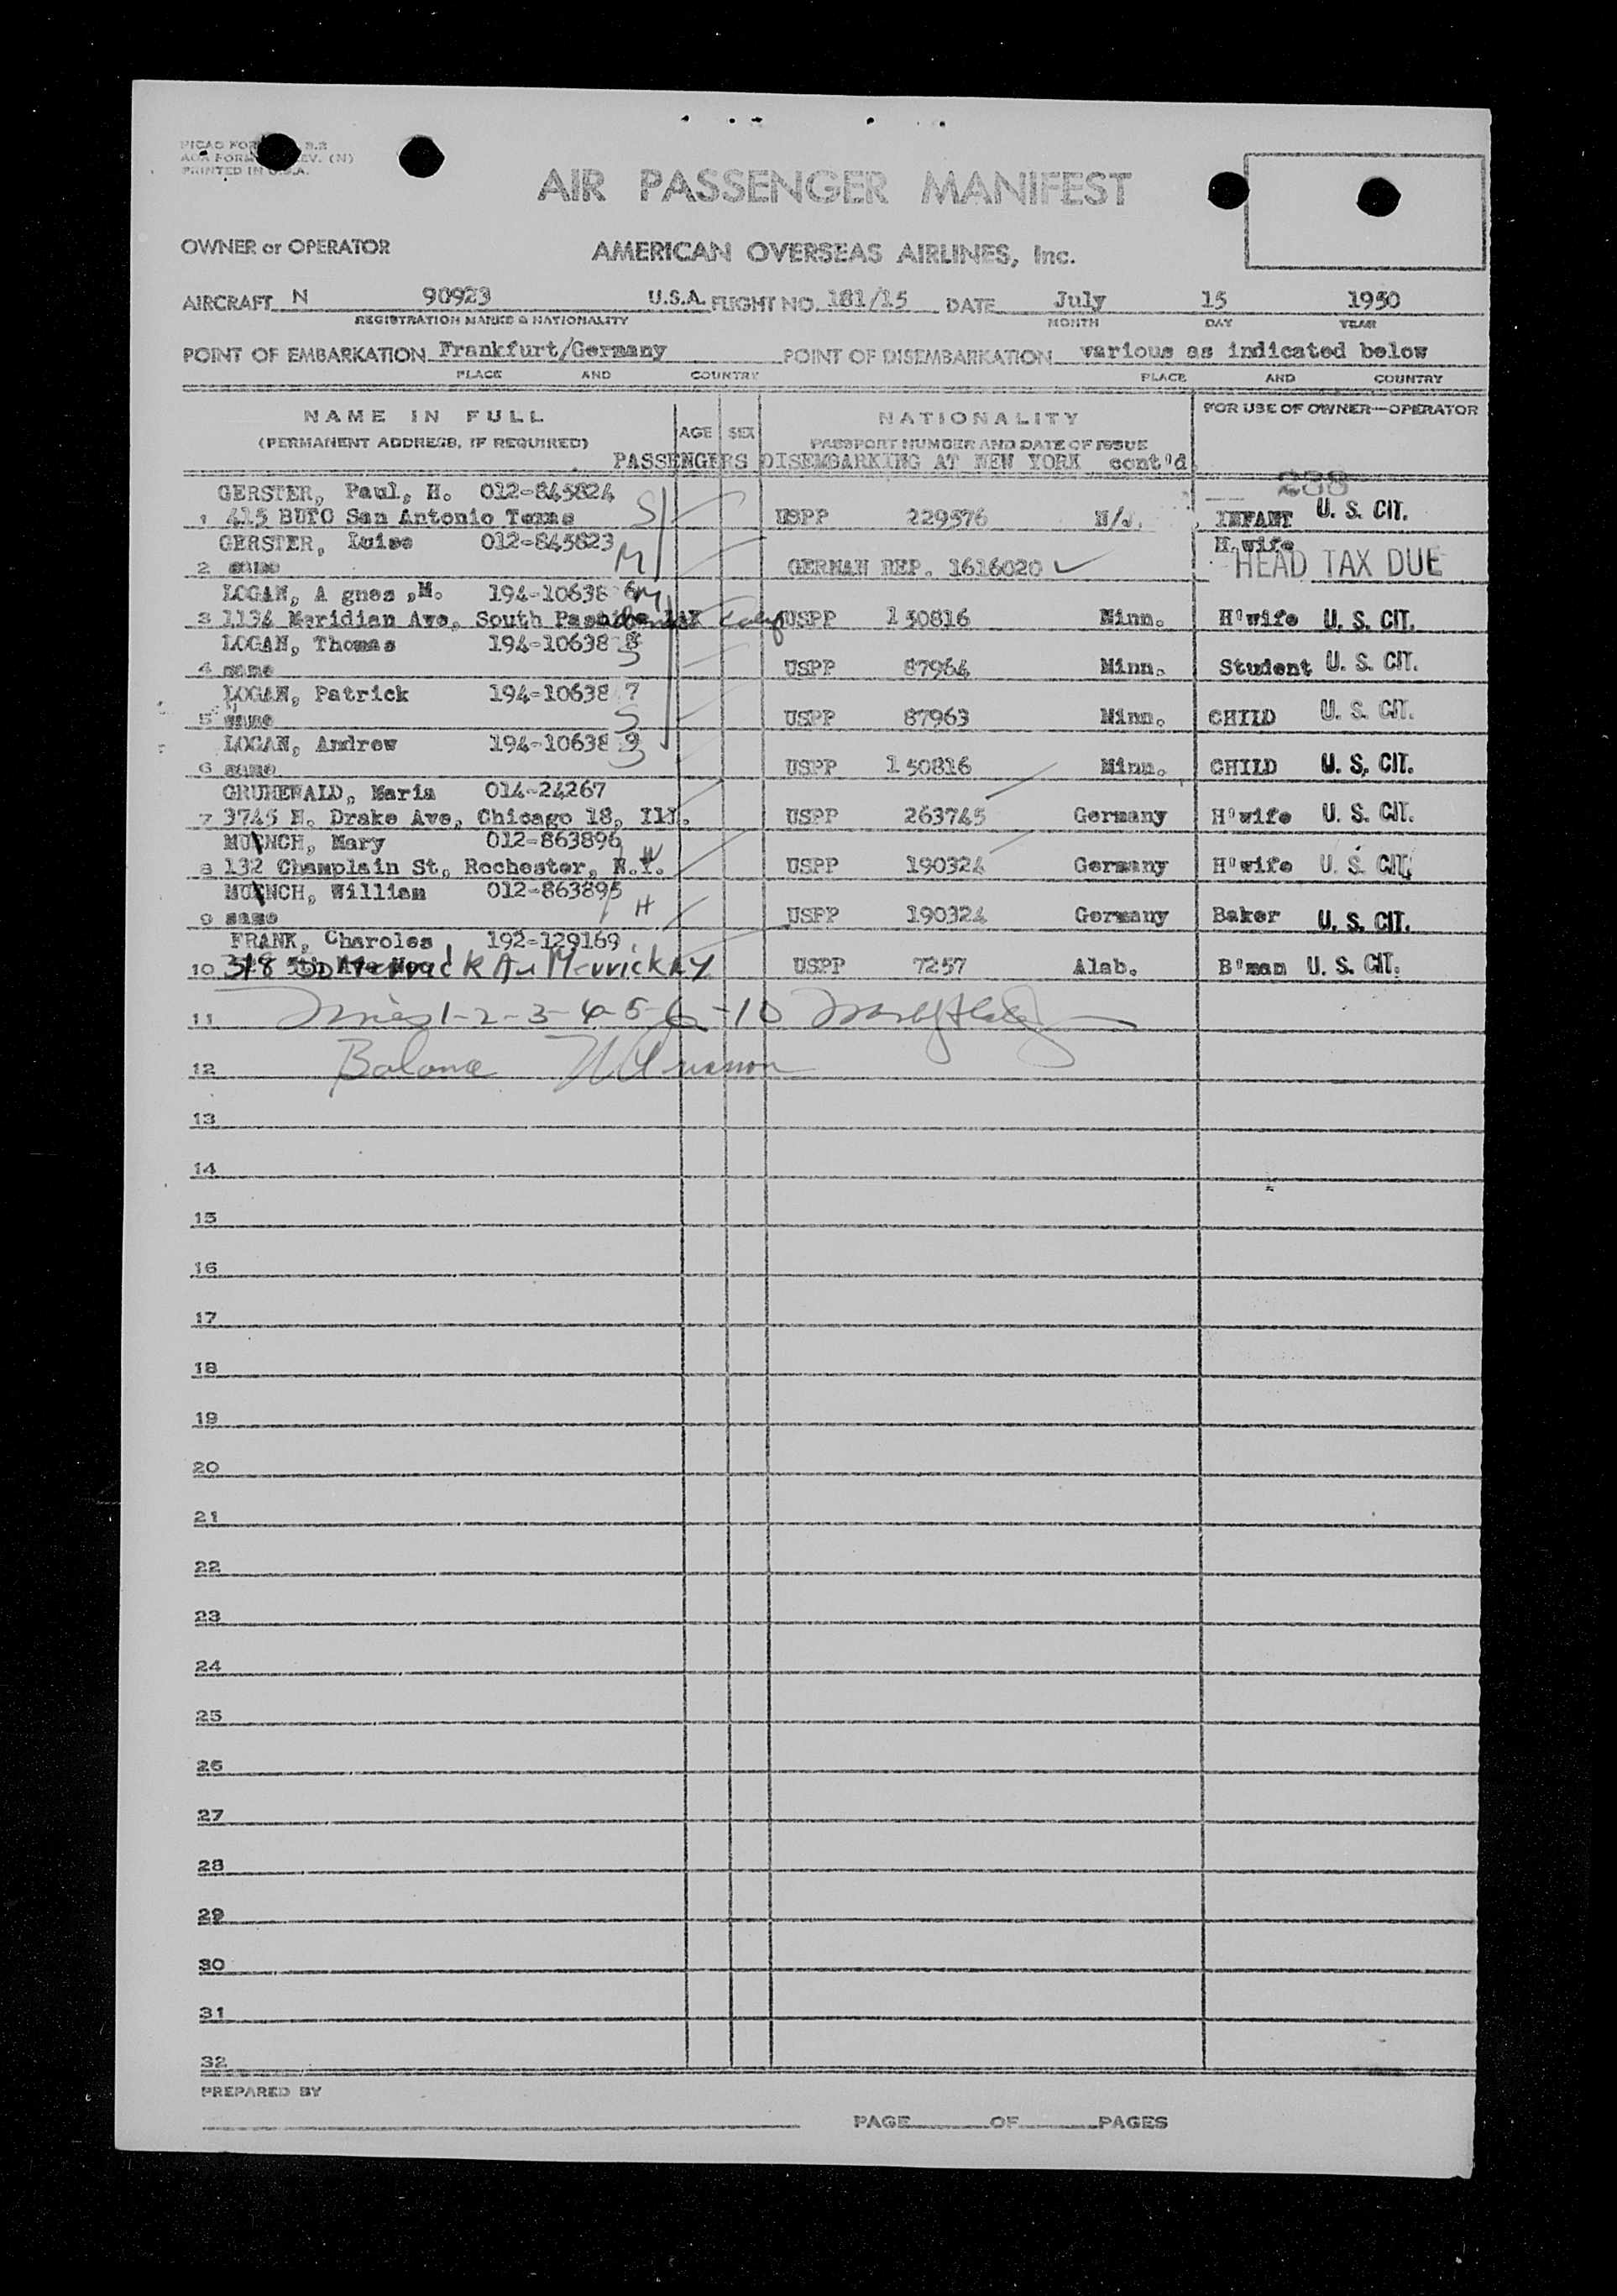 PICAO FOR 8.2
AOA FORM REV. (N)
PRINTED IN U.S.A.
AIR PASSENGER MANIFEST
OWNER or OPERATOR AMERICAN OVERSEAS AIRLINES, Inc.
AIRCRAFT N 90923 U.S.A. FLIGHT NO. 181/15 DATE July 15 1950
REGISTRATION MARKS & NATIONALITY MONTH DAY YEAR
POINT OF EMBARKATION Frankfurt/Germany POINT OF DISEMBARKATION various as indicated below
PLACE AND COUNTRY PLACE AND COUNTRY
NAME IN FULL AGE SEX NATIONALITY FOR USE OF OWNER—OPERATOR
(PERMANENT ADDRESS, IF REQUIRED) PASSPORT NUMBER AND DATE OF ISSUE
PASSENGERS DISEMBARKING AT NEW YORK cont'd
238
GERSTER, Paul, H. 012-845824 S
1 415 San Antonio Texas USPP 229576 INFANT U. S. CIT.
GERSTER, Luise 012-845823 M H.wife
2 same GERMAN REP. 1616020 HEAD TAX DUE
LOGAN, A gnes ,M. 194-10638 6 M
3 1134 Meridian Ave, South USPP 150816 Minn. H'wife U. S. CIT.
LOGAN, Thomas 194-10638 8
4 same S USPP 87964 Minn. Student U. S. CIT.
LOGAN, Patrick 194-10638 7
5 same S USPP 87963 Minn. CHILD U. S. CIT.
LOGAN, Andrew 194-10638 9
6 same S USPP 150816 Minn. CHILD U. S. CIT.
GRUNEWALD, Maria 014-24267
7 3745 N. Drake Ave, Chicago 18, Ill. USPP 263745 Germany H'wife U. S. CIT.
MUENCH, Mary 012-863896
8 132 Champlain St, Rochester, N.Y. W USPP 190324 Germany H'wife U. S. CIT.
MUENCH, William 012-863895
9 same H USPP 190324 Germany Baker U. S. CIT.
FRANK, Charoles 192-129169
10 318 Merrick Av Merrick NY USPP 7257 Alab. B'man U. S. CIT.
11 Lines 1-2-3-4-5-6-10
12 Balance
13
14
15
16
17
18
19
20
21
22
23
24
25
26
27
28
29
30
31
32
PREPARED BY
PAGE OF PAGES